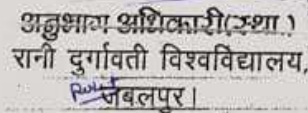 अनुभाग अधिकारी(स्था )
रानी दुर्गावती विश्वविद्यालय,
जबलपुर।